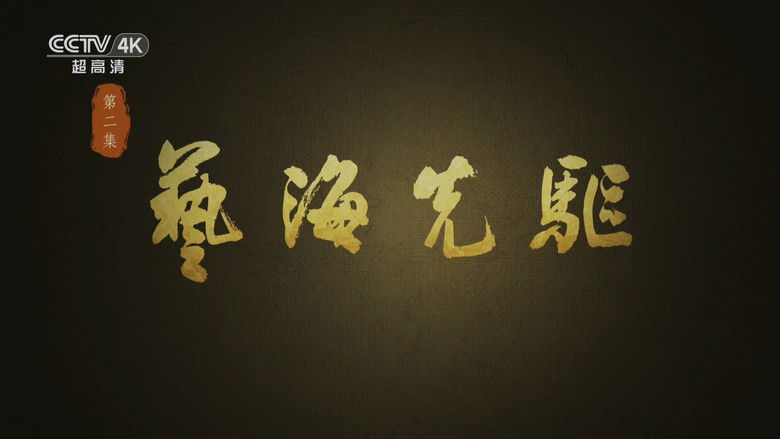 CCTV 4K
超高清
第二集
藝海先驅